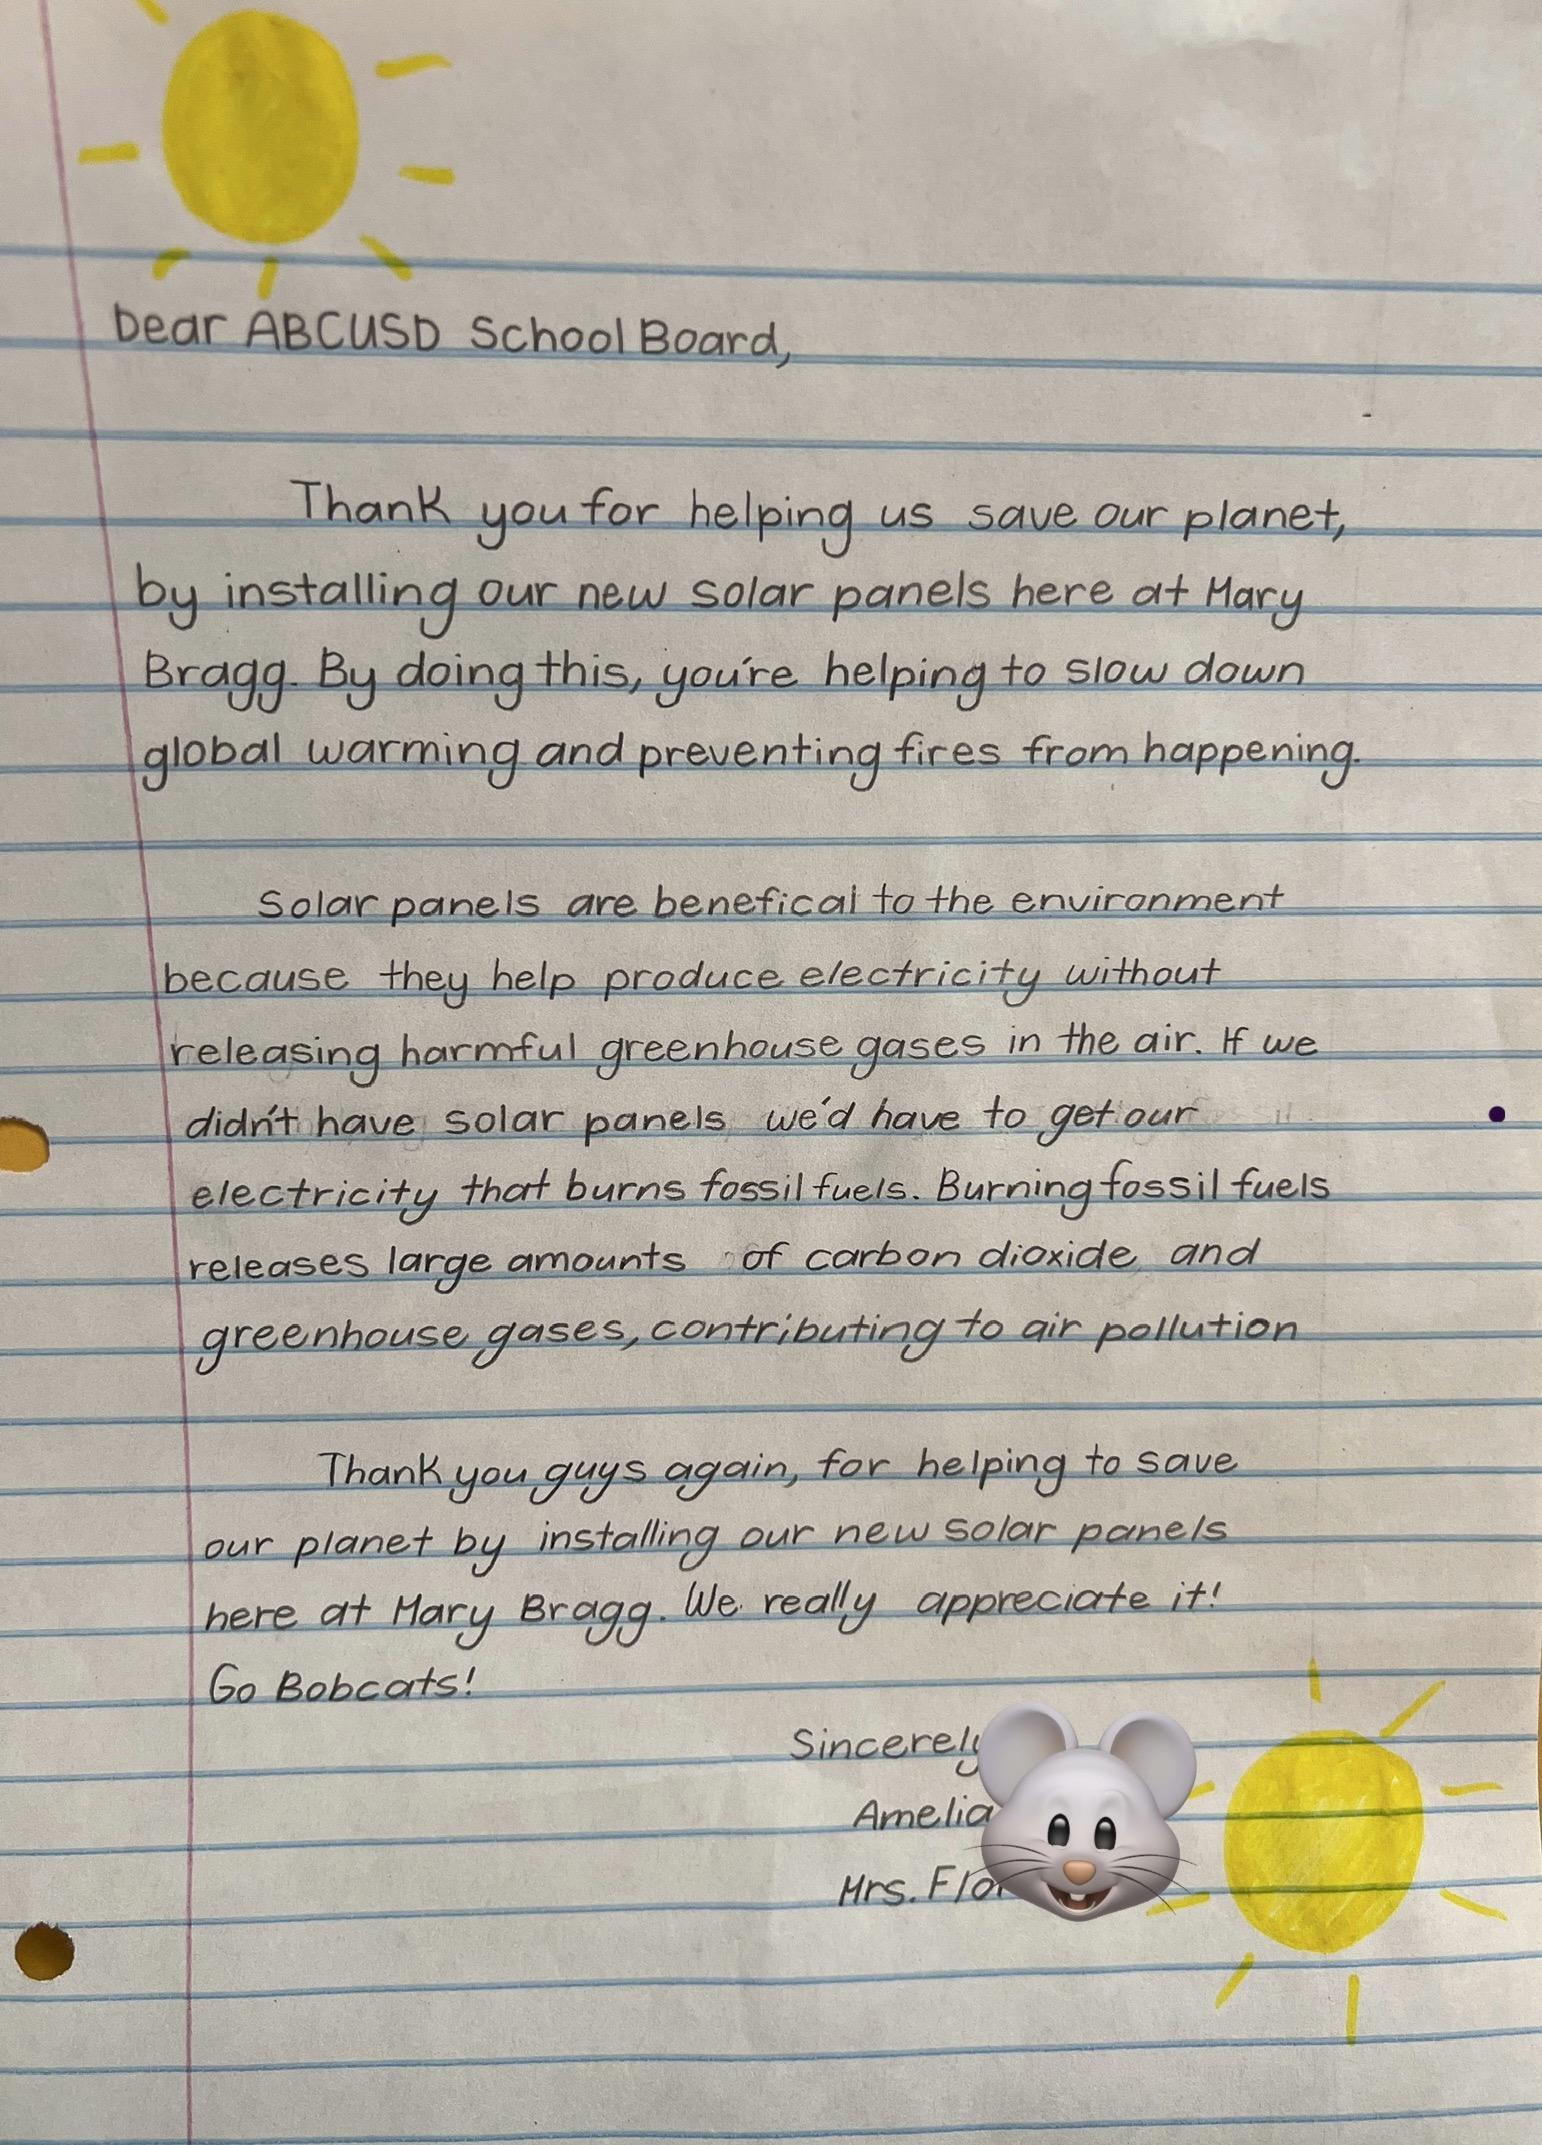 Dear ABCUSD School Board,
Thank you for helping us save our planet,
by installing our new solar panels here at Mary
Bragg. By doing this, you're helping to slow down
global warming and preventing fires from happening.
Solar panels are benefical to the environment
because they help produce electricity without
releasing harmful greenhouse gases in the air. If we
didn't have solar panels we'd have to get our
electricity that burns fossil fuels. Burning fossil fuels
releases large amounts of carbon dioxide and
greenhouse gases, contributing to air pollution
Thank you guys again, for helping to save
our planet by installing our new solar panels
here at Mary Bragg. We really appreciate it!
Go Bobcats!
Sincerely
Amelia
Mrs.